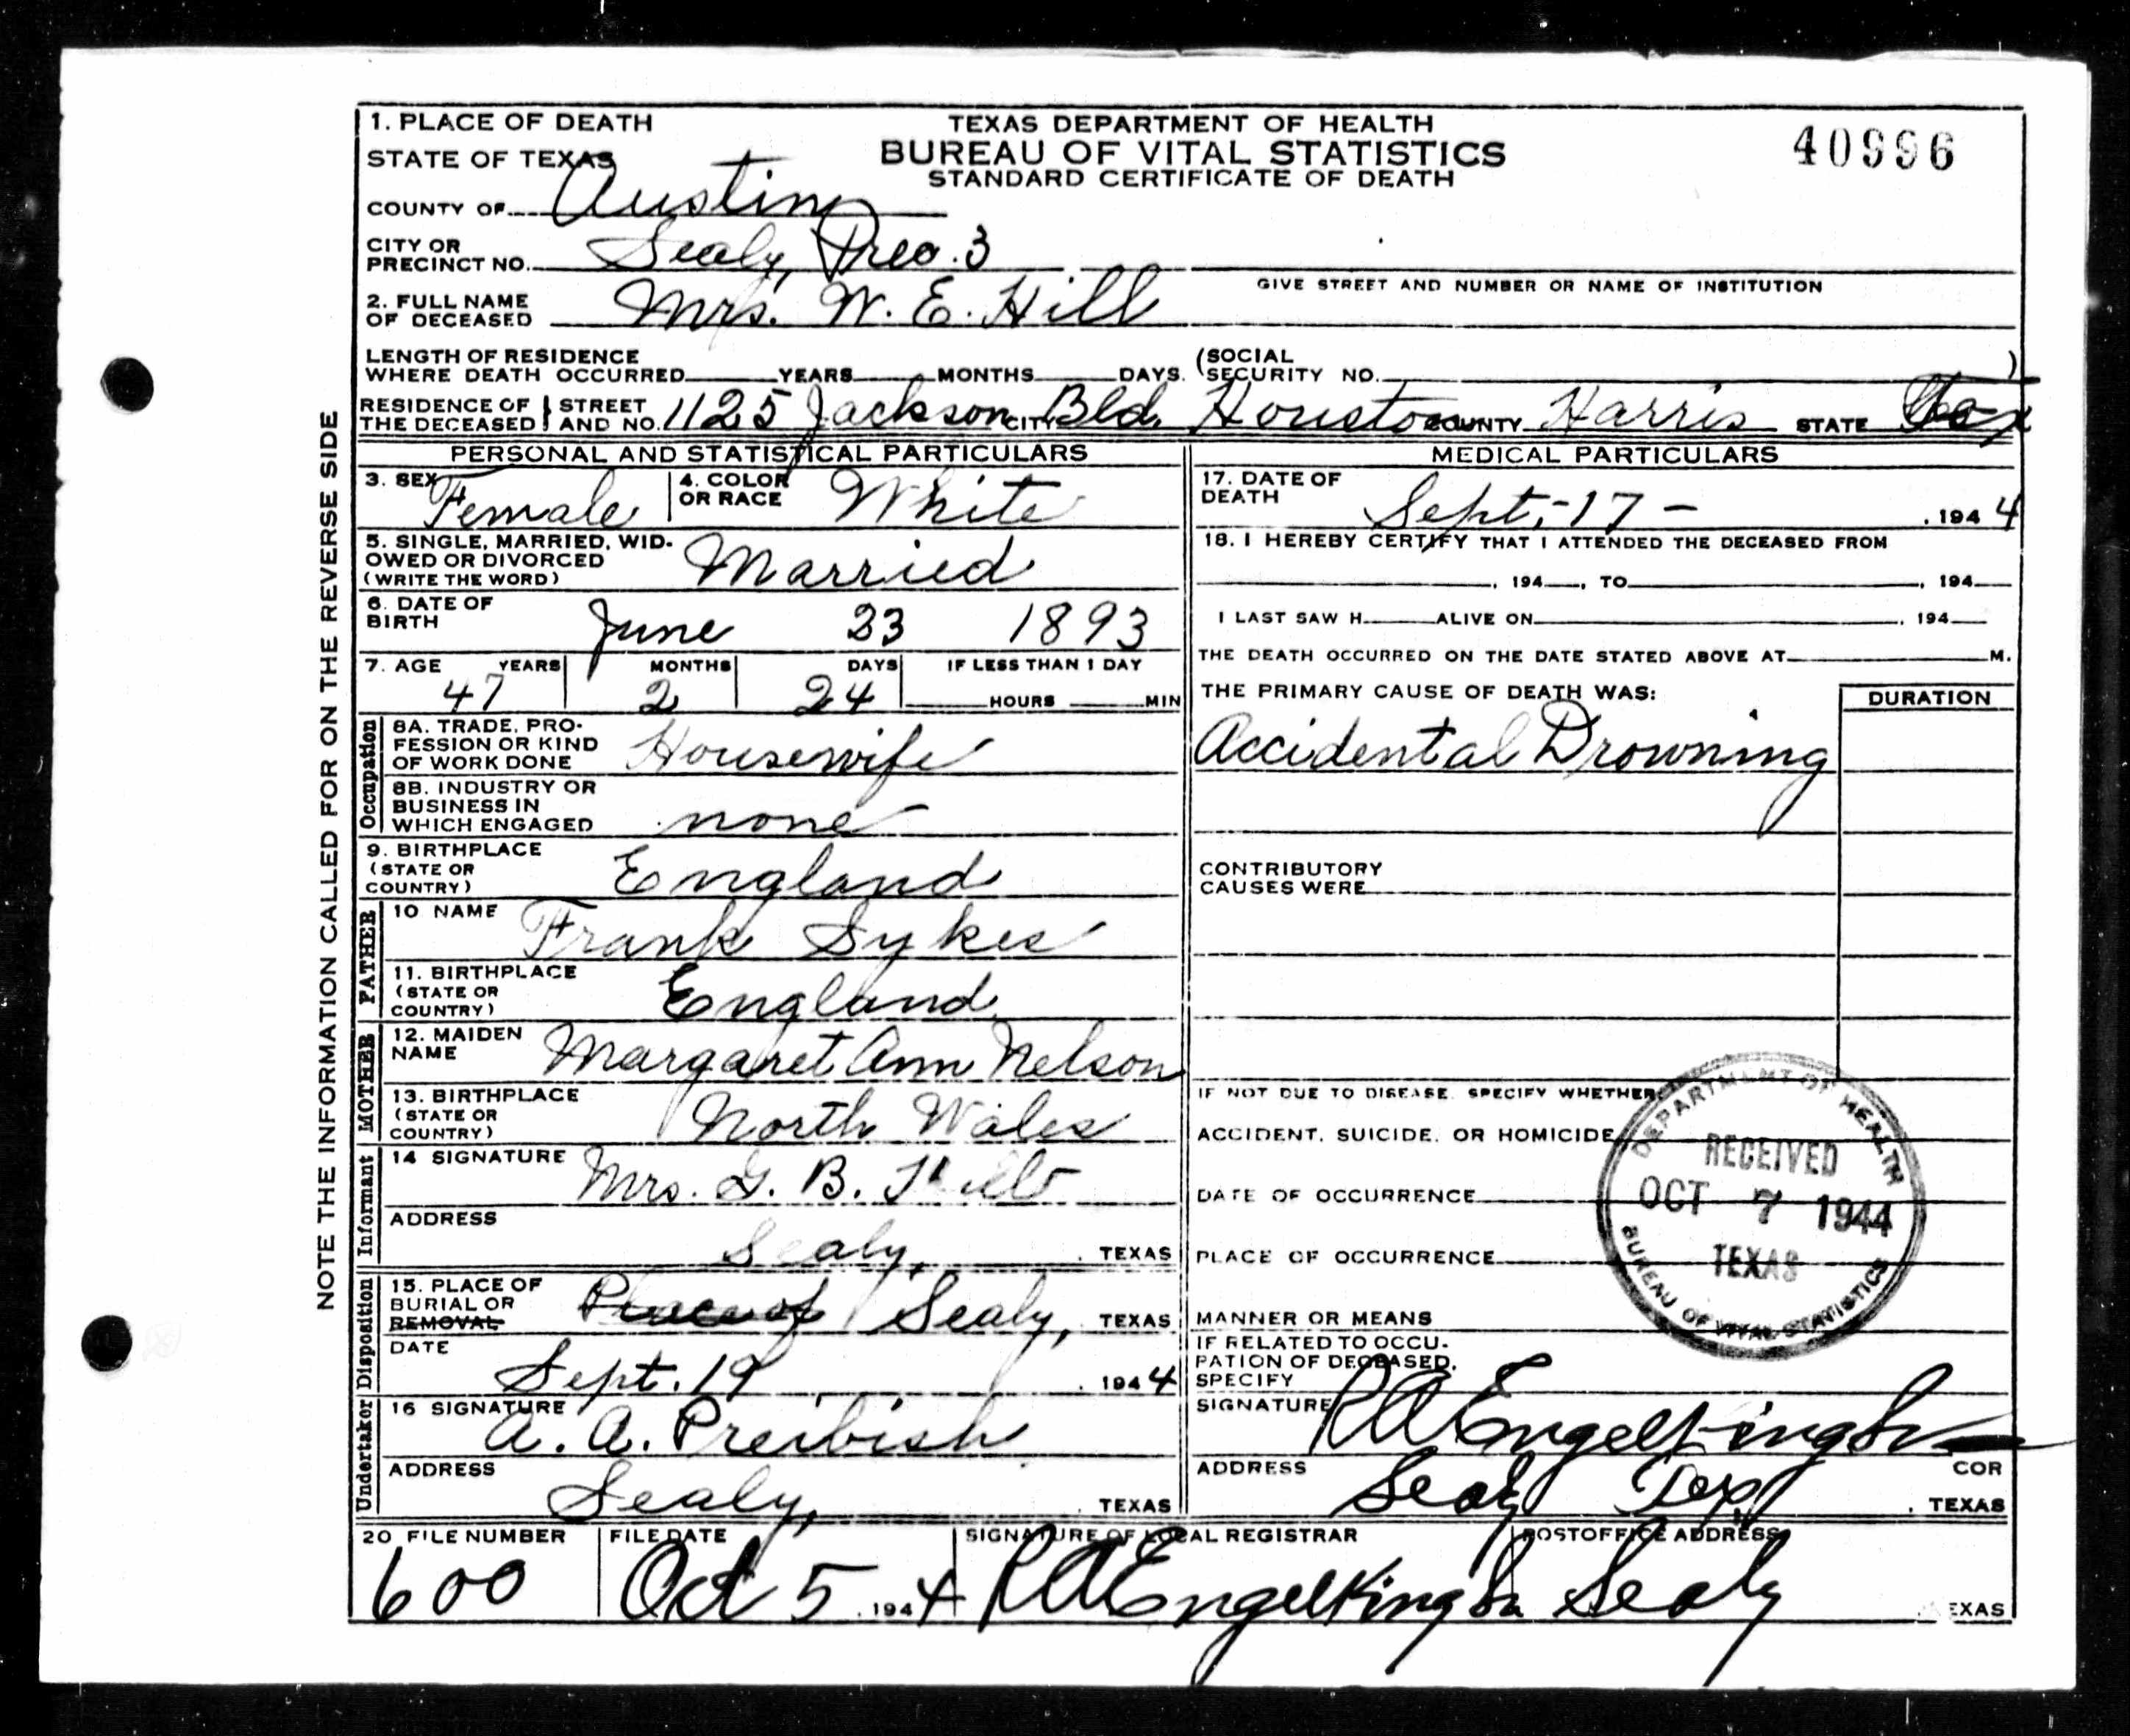 1. PLACE OF DEATH
STATE OF TEXAS
TEXAS DEPARTMENT OF HEALTH
BUREAU OF VITAL STATISTICS
STANDARD CERTIFICATE OF DEATH
40996
COUNTY OF Austin
CITY OR PRECINCT NO. Sealy, Prec. 3
GIVE STREET AND NUMBER OR NAME OF INSTITUTION
2. FULL NAME OF DECEASED Mrs. W. E. Hill
LENGTH OF RESIDENCE WHERE DEATH OCCURRED YEARS MONTHS DAYS. (SOCIAL SECURITY NO. )
RESIDENCE OF THE DECEASED STREET AND NO. 1125 Jackson Bld. CITY Houston COUNTY Harris STATE Tex
NOTE THE INFORMATION CALLED FOR ON THE REVERSE SIDE
PERSONAL AND STATISTICAL PARTICULARS
3. SEX Female 4. COLOR OR RACE White
5. SINGLE, MARRIED, WIDOWED OR DIVORCED (WRITE THE WORD) Married
6. DATE OF BIRTH June 23 1893
7. AGE YEARS MONTHS DAYS IF LESS THAN 1 DAY
47 2 24 HOURS MIN
Occupation
8A. TRADE, PROFESSION OR KIND OF WORK DONE Housewife
8B. INDUSTRY OR BUSINESS IN WHICH ENGAGED none
9. BIRTHPLACE (STATE OR COUNTRY) England
FATHER
10 NAME Frank Sykes
11. BIRTHPLACE (STATE OR COUNTRY) England
MOTHER
12. MAIDEN NAME Margaret Ann Nelson
13. BIRTHPLACE (STATE OR COUNTRY) North Wales
Informant
14 SIGNATURE Mrs. G. B.
ADDRESS Sealy, TEXAS
Disposition
15. PLACE OF BURIAL OR REMOVAL Place of Sealy, TEXAS
DATE Sept. 19 1944
Undertaker
16 SIGNATURE A. A. Preibish
ADDRESS Sealy, TEXAS
MEDICAL PARTICULARS
17. DATE OF DEATH Sept.-17- , 1944
18. I HEREBY CERTIFY THAT I ATTENDED THE DECEASED FROM
, 194 , TO , 194
I LAST SAW H ALIVE ON , 194
THE DEATH OCCURRED ON THE DATE STATED ABOVE AT M.
THE PRIMARY CAUSE OF DEATH WAS: DURATION
Accidental Drowning
CONTRIBUTORY CAUSES WERE
IF NOT DUE TO DISEASE, SPECIFY WHETHER
ACCIDENT, SUICIDE, OR HOMICIDE
DATE OF OCCURRENCE
PLACE OF OCCURRENCE
MANNER OR MEANS
IF RELATED TO OCCUPATION OF DECEASED, SPECIFY
DEPARTMENT OF HEALTH
RECEIVED
OCT 7 1944
TEXAS
BUREAU OF VITAL STATISTICS
SIGNATURE RA Engelking Sr
COR
ADDRESS Sealy Tex , TEXAS
20 FILE NUMBER FILE DATE SIGNATURE OF LOCAL REGISTRAR POSTOFFICE ADDRESS
600 Oct 5 , 1944 RA Engelking Sr Sealy TEXAS